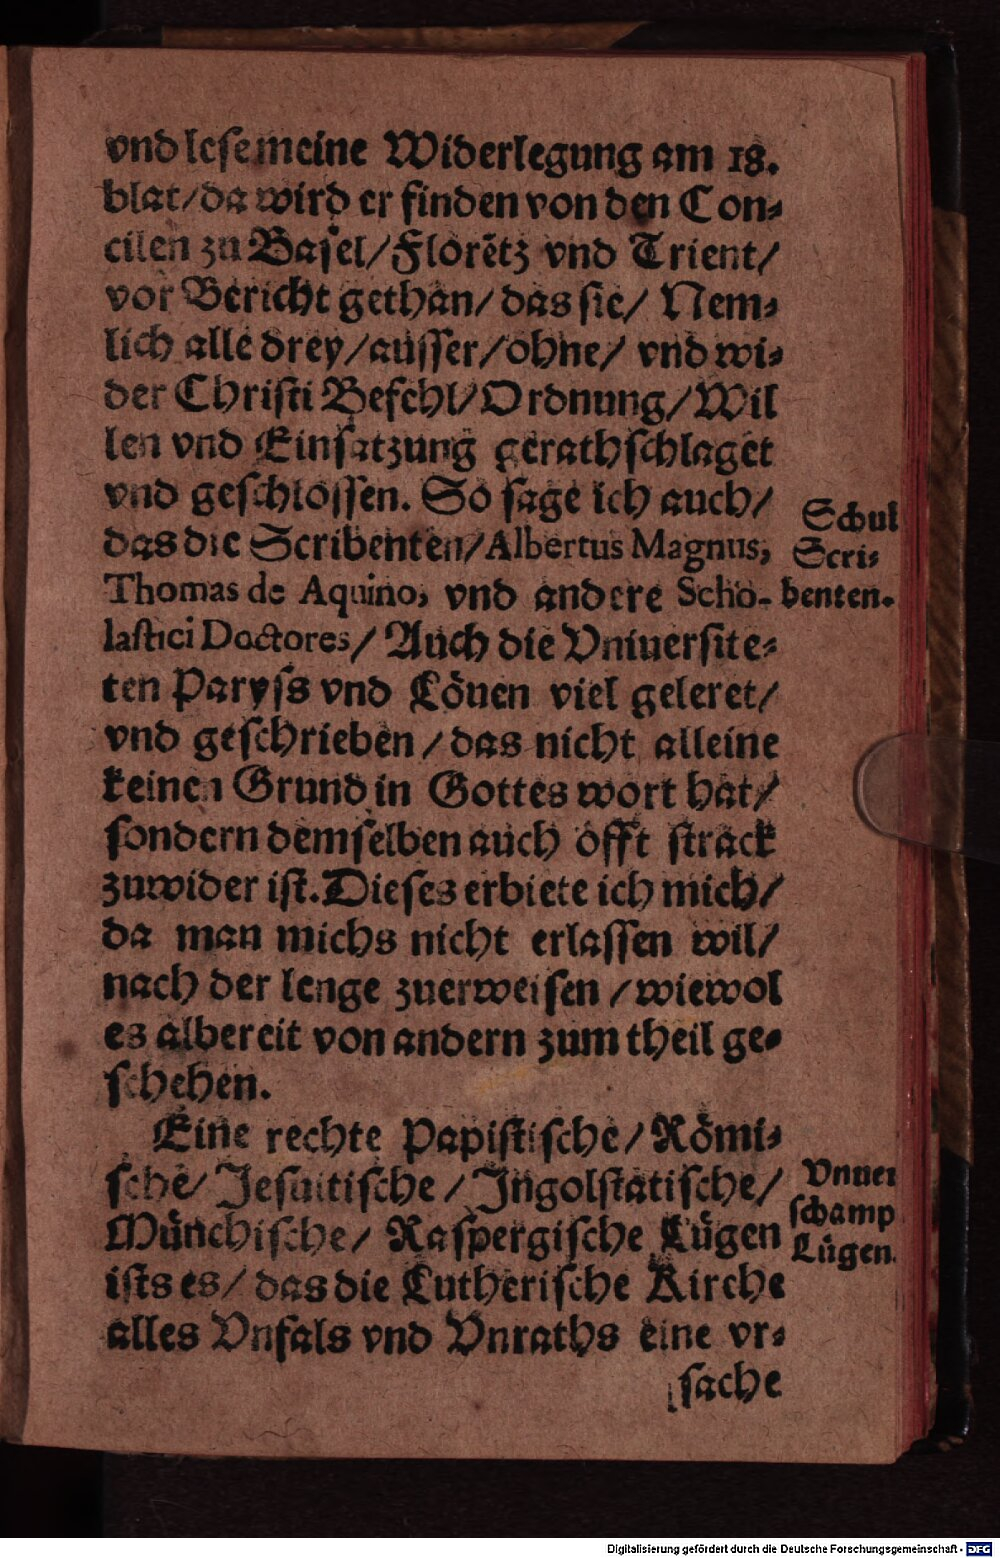 vnd lese meine Widerlegung am 18.
blat/da wird er finden von den Con⸗
cilen zu Basel/Florẽtz vnd Trient/
vor Bericht gethan/ das sie/ Nem⸗
lich alle drey/ausser/ohne/ vnd wi⸗
der Christi Befehl/Ordnung/Wil
len vnd Einsatzung gerathschlaget
vnd geschlossen. So sage ich auch/
das die Scribenten/Albertus Magnus,
Thomas de Aquino, vnd andere Scho-
lastici Doctores/ Auch die Vniuersite⸗
ten Paryss vnd Löuen viel geleret/
vnd geschrieben/das nicht alleine
keinen Grund in Gottes wort hat/
sondern demselben auch offt strack
zuwider ist. Dieses erbiete ich mich/
da man michs nicht erlassen wil/
nach der lenge zuerweisen/wiewol
es albereit von andern zum theil ge⸗
schehen.
Eine rechte Papistische/Römi⸗
sche/Jesuitische/Jngolstatische/
Münchische/ Raspergische Lügen
ists es/ das die Lutherische Kirche
alles Vnfals vnd Vnraths eine vr⸗
sache
Schul
Scri⸗
benten.
Vnuer
schamp
Lügen.
Digitalisierung gefördert durch die Deutsche Forschungsgemeinschaft - DFG